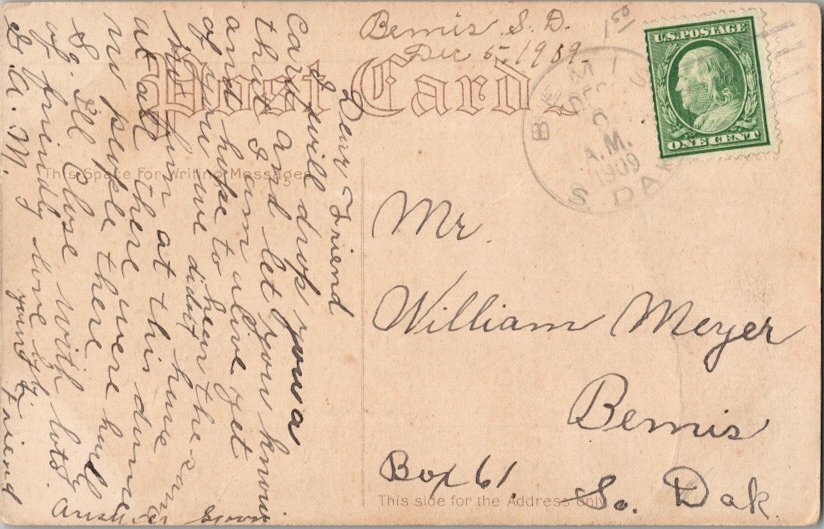 Bemis S. D.
Dec 5, 1909.
150
Post Card
U.S. POSTAGE
ONE CENT
BEMIS
DEC
6
A.M.
1909
S. DAK.
This Space For Writing Messages
Dear Friend
I will drop you a
card and let you know
that I am alive yet
and hope to hear the same
of you we didnt have
fun at this dance
at all there were hardly
no people there
I'll Close with lots
of friendly love by
G. A. M. your Friend
Answer Soon
Mr.
William Meyer
Bemis
Box 61, So. Dak.
This side for the Address only